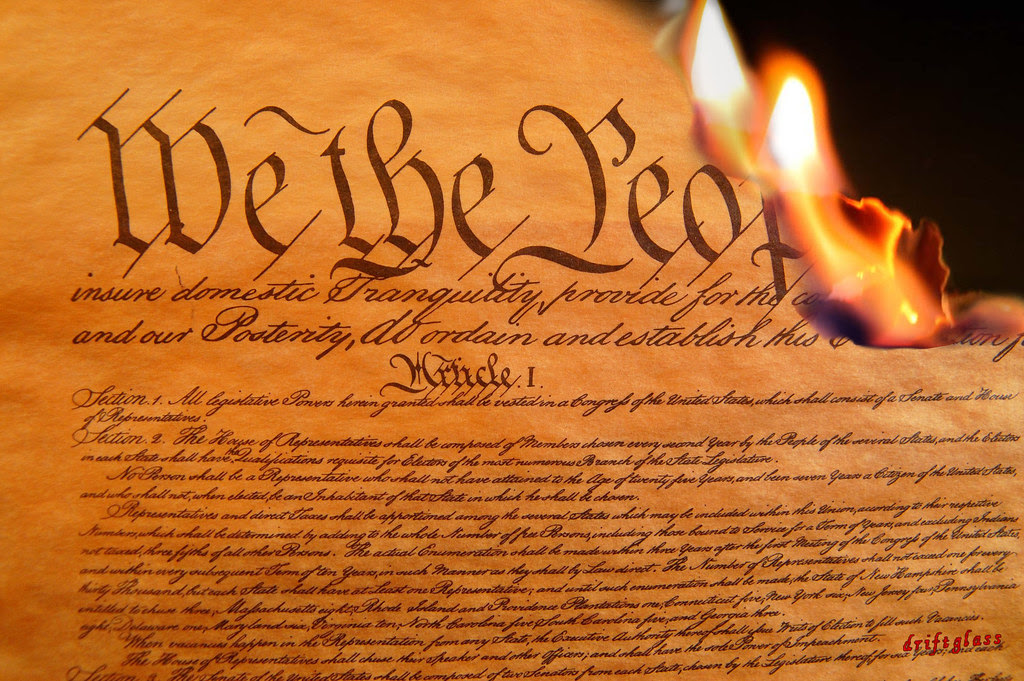 We the Peop
insure domestic Tranquility, provide for the co
and our Posterity, do ordain and establish this
Article. I.
Section. 1. All legislative Powers herein granted shall be vested in a Congress of the United States, which shall consist of a Senate and House
of Representatives.
Section. 2. The House of Representatives shall be composed of Members chosen every second Year by the People of the several States, and the Electors
in each State shall have the Qualifications requisite for Electors of the most numerous Branch of the State Legislature.
No Person shall be a Representative who shall not have attained to the Age of twenty five Years, and been seven Years a Citizen of the United States,
and who shall not, when elected, be an Inhabitant of that State in which he shall be chosen.
Representatives and direct Taxes shall be apportioned among the several States which may be included within this Union, according to their respective
Numbers, which shall be determined by adding to the whole Number of free Persons, including those bound to Service for a Term of Years, and excluding Indians
not taxed, three fifths of all other Persons. The actual Enumeration shall be made within three Years after the first Meeting of the Congress of the United States,
and within every subsequent Term of ten Years, in such Manner as they shall by Law direct. The Number of Representatives shall not exceed one for every
thirty Thousand, but each State shall have at Least one Representative; and until such enumeration shall be made, the State of New Hampshire shall be
entitled to chuse three, Massachusetts eight, Rhode Island and Providence Plantations one, Connecticut five, New York six, New Jersey four, Pennsylvania
eight, Delaware one, Maryland six, Virginia ten, North Carolina five, South Carolina five, and Georgia three.
When vacancies happen in the Representation from any State, the Executive Authority thereof shall issue Writs of Election to fill such Vacancies.
The House of Representatives shall chuse their Speaker and other Officers; and shall have the sole Power of Impeachment.
Section. 3. The Senate of the United States shall be composed of two Senators from each State, chosen by the Legislature thereof, for six Years; and each
driftglass